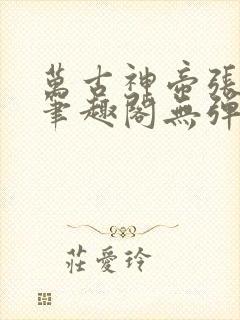 萬古神帝張
筆趣閣無彈
莊愛玲